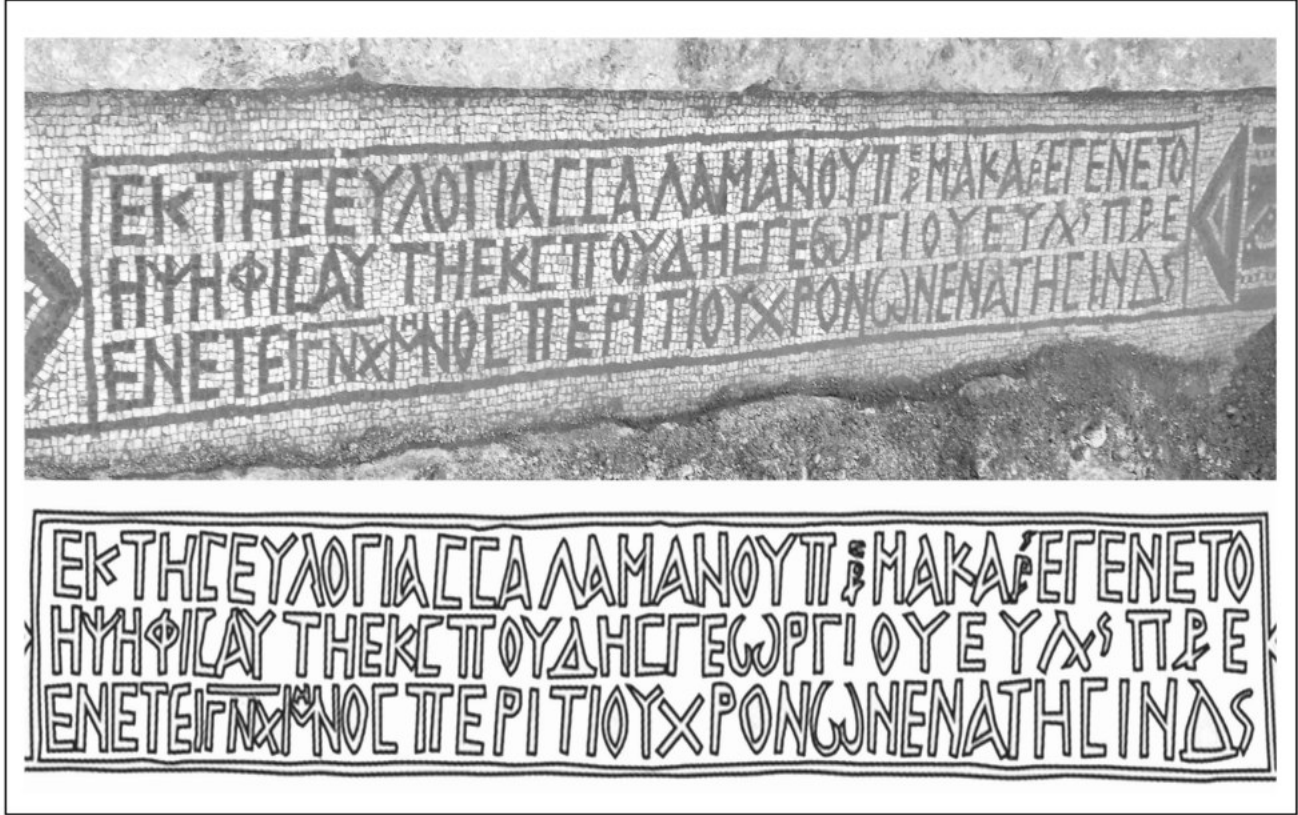 ΕΚΤΗϹΕΥΛΟΓΙΑϹϹΑΛΑΜΑΝΟΥΠΡΕΜΑΚΑΡϚΕΓΕΝΕΤΟ
ΗΨΗΦΙϹΑΥΤΗΕΚϹΠΟΥΔΗϹΓΕΩΡΓΙΟΥΕΥΛϚΠΡΕ
ΕΝΕΤΕΙΓΝΧΜΗΝΟϹΠΕΡΙΤΙΟΥΧΡΟΝΩΝΕΝΑΤΗϹΙΝΔϚ
ΕΚΤΗϹΕΥΛΟΓΙΑϹϹΑΛΑΜΑΝΟΥΠΡΕΜΑΚΑΡϚΕΓΕΝΕΤΟ
ΗΨΗΦΙϹΑΥΤΗΕΚϹΠΟΥΔΗϹΓΕΩΡΓΙΟΥΕΥΛϚΠΡΕ
ΕΝΕΤΕΙΓΝΧΜΗΝΟϹΠΕΡΙΤΙΟΥΧΡΟΝΩΝΕΝΑΤΗϹΙΝΔϚ